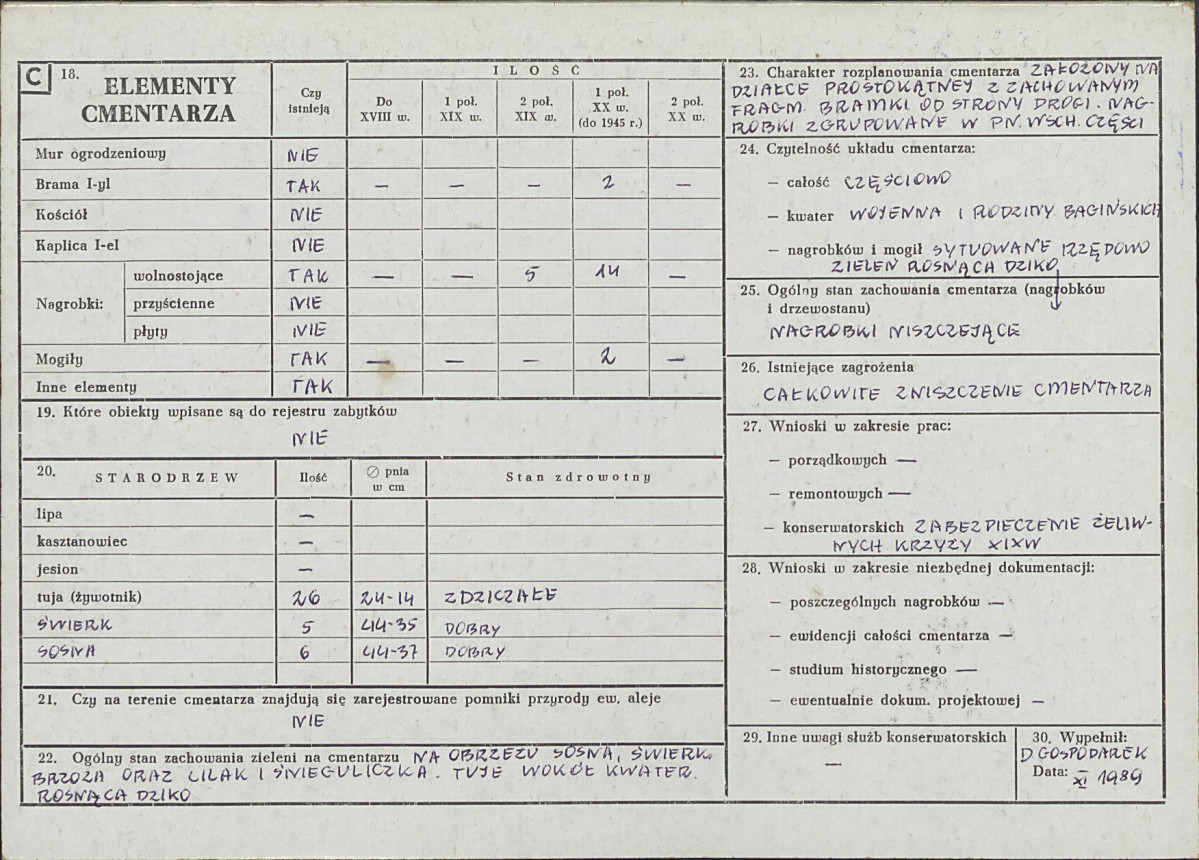 C 18. ELEMENTY CMENTARZA
Czy istnieją
ILOŚĆ
Do XVIII w.
1 poł. XIX w.
2 poł. XIX w.
1 poł. XX w. (do 1945 r.)
2 poł. XX w.
Mur ogrodzeniowy NIE
Brama I-yl TAK — — — 2 —
Kościół NIE
Kaplica I-el NIE
Nagrobki: wolnostojące TAK — — 5 14 —
przyścienne NIE
płyty NIE
Mogiły TAK — — — 2 —
Inne elementy TAK
19. Które obiekty wpisane są do rejestru zabytków
NIE
20. STARODRZEW Ilość ∅ pnia w cm Stan zdrowotny
lipa —
kasztanowiec —
jesion —
tuja (żywotnik) 26 24-14 ZDZICZAŁE
ŚWIERK 5 44-35 DOBRY
SOSNA 6 44-37 DOBRY
21. Czy na terenie cmentarza znajdują się zarejestrowane pomniki przyrody ew. aleje
NIE
22. Ogólny stan zachowania zieleni na cmentarzu NA OBRZEZU SOSNA, ŚWIERK,
BRZOZA ORAZ LILAK I ŚNIEGULICZKA. TUJE WOKÓŁ KWATER.
ROSNĄCA DZIKO
23. Charakter rozplanowania cmentarza ZAŁOZONY NA
DZIAŁCE PROSTOKĄTNEJ Z ZACHOWANYM
FRAGM. BRAMKI OD STRONY DROGI. NAG-
ROBKI ZGRUPOWANE W PN. WSCH. CZĘŚCI
24. Czytelność układu cmentarza:
— całość CZĘŚCIOWO
— kwater WOJENNA I RODZINY BAGIŃSKICH
— nagrobków i mogił SYTUOWANE RZĘDOWO
ZIELEŃ ROSNĄCA DZIKO
25. Ogólny stan zachowania cmentarza (nagrobków
i drzewostanu)
NAGROBKI NISZCZEJĄCE
26. Istniejące zagrożenia
CAŁKOWITE ZNISZCZENIE CMENTARZA
27. Wnioski w zakresie prac:
— porządkowych —
— remontowych —
— konserwatorskich ZABEZPIECZENIE ŻELIW-
NYCH KRZYZY XIXW
28. Wnioski w zakresie niezbędnej dokumentacji:
— poszczególnych nagrobków —
— ewidencji całości cmentarza —
— studium historycznego —
— ewentualnie dokum. projektowej —
29. Inne uwagi służb konserwatorskich
—
30. Wypełnił:
D GOSPODAREK
Data: XI 1989